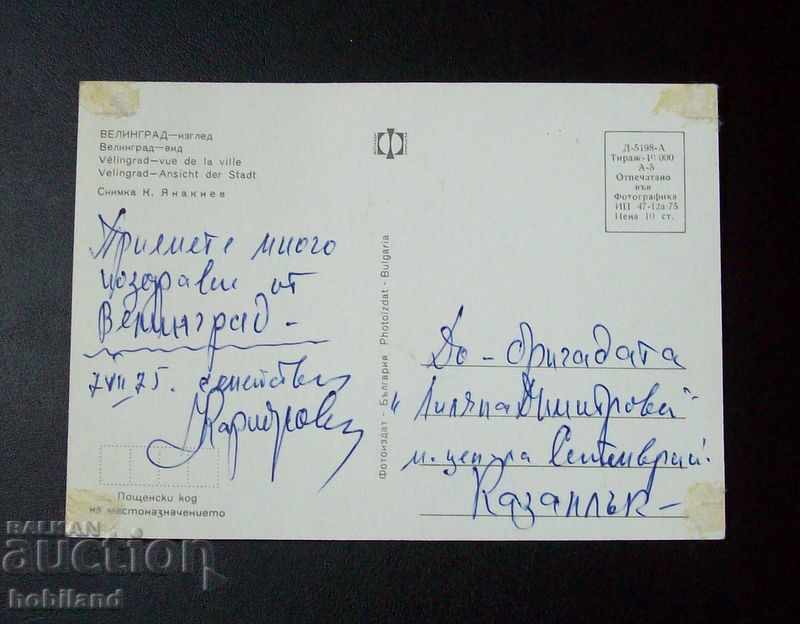 ВЕЛИНГРАД—изглед
Велинград—вид
Vélingrad—vue de la ville
Velingrad—Ansicht der Stadt
Снимка К. Янакиев
Приемете много
поздрави от
Велинград –
7 VII 75. семейство
Пощенски код
на местоназначението
Фотоиздат - България Photoizdat - Bulgaria
Д-5198-А
Тираж-10 000
А-5
Отпечатано
във
Фотографика
ИП 47-12а-75
Цена 10 ст.
До - бригадата
"Лиляна Димитрова"
м. центра Септемврий.
Казанлък –
BALKAN
auction
hobiland